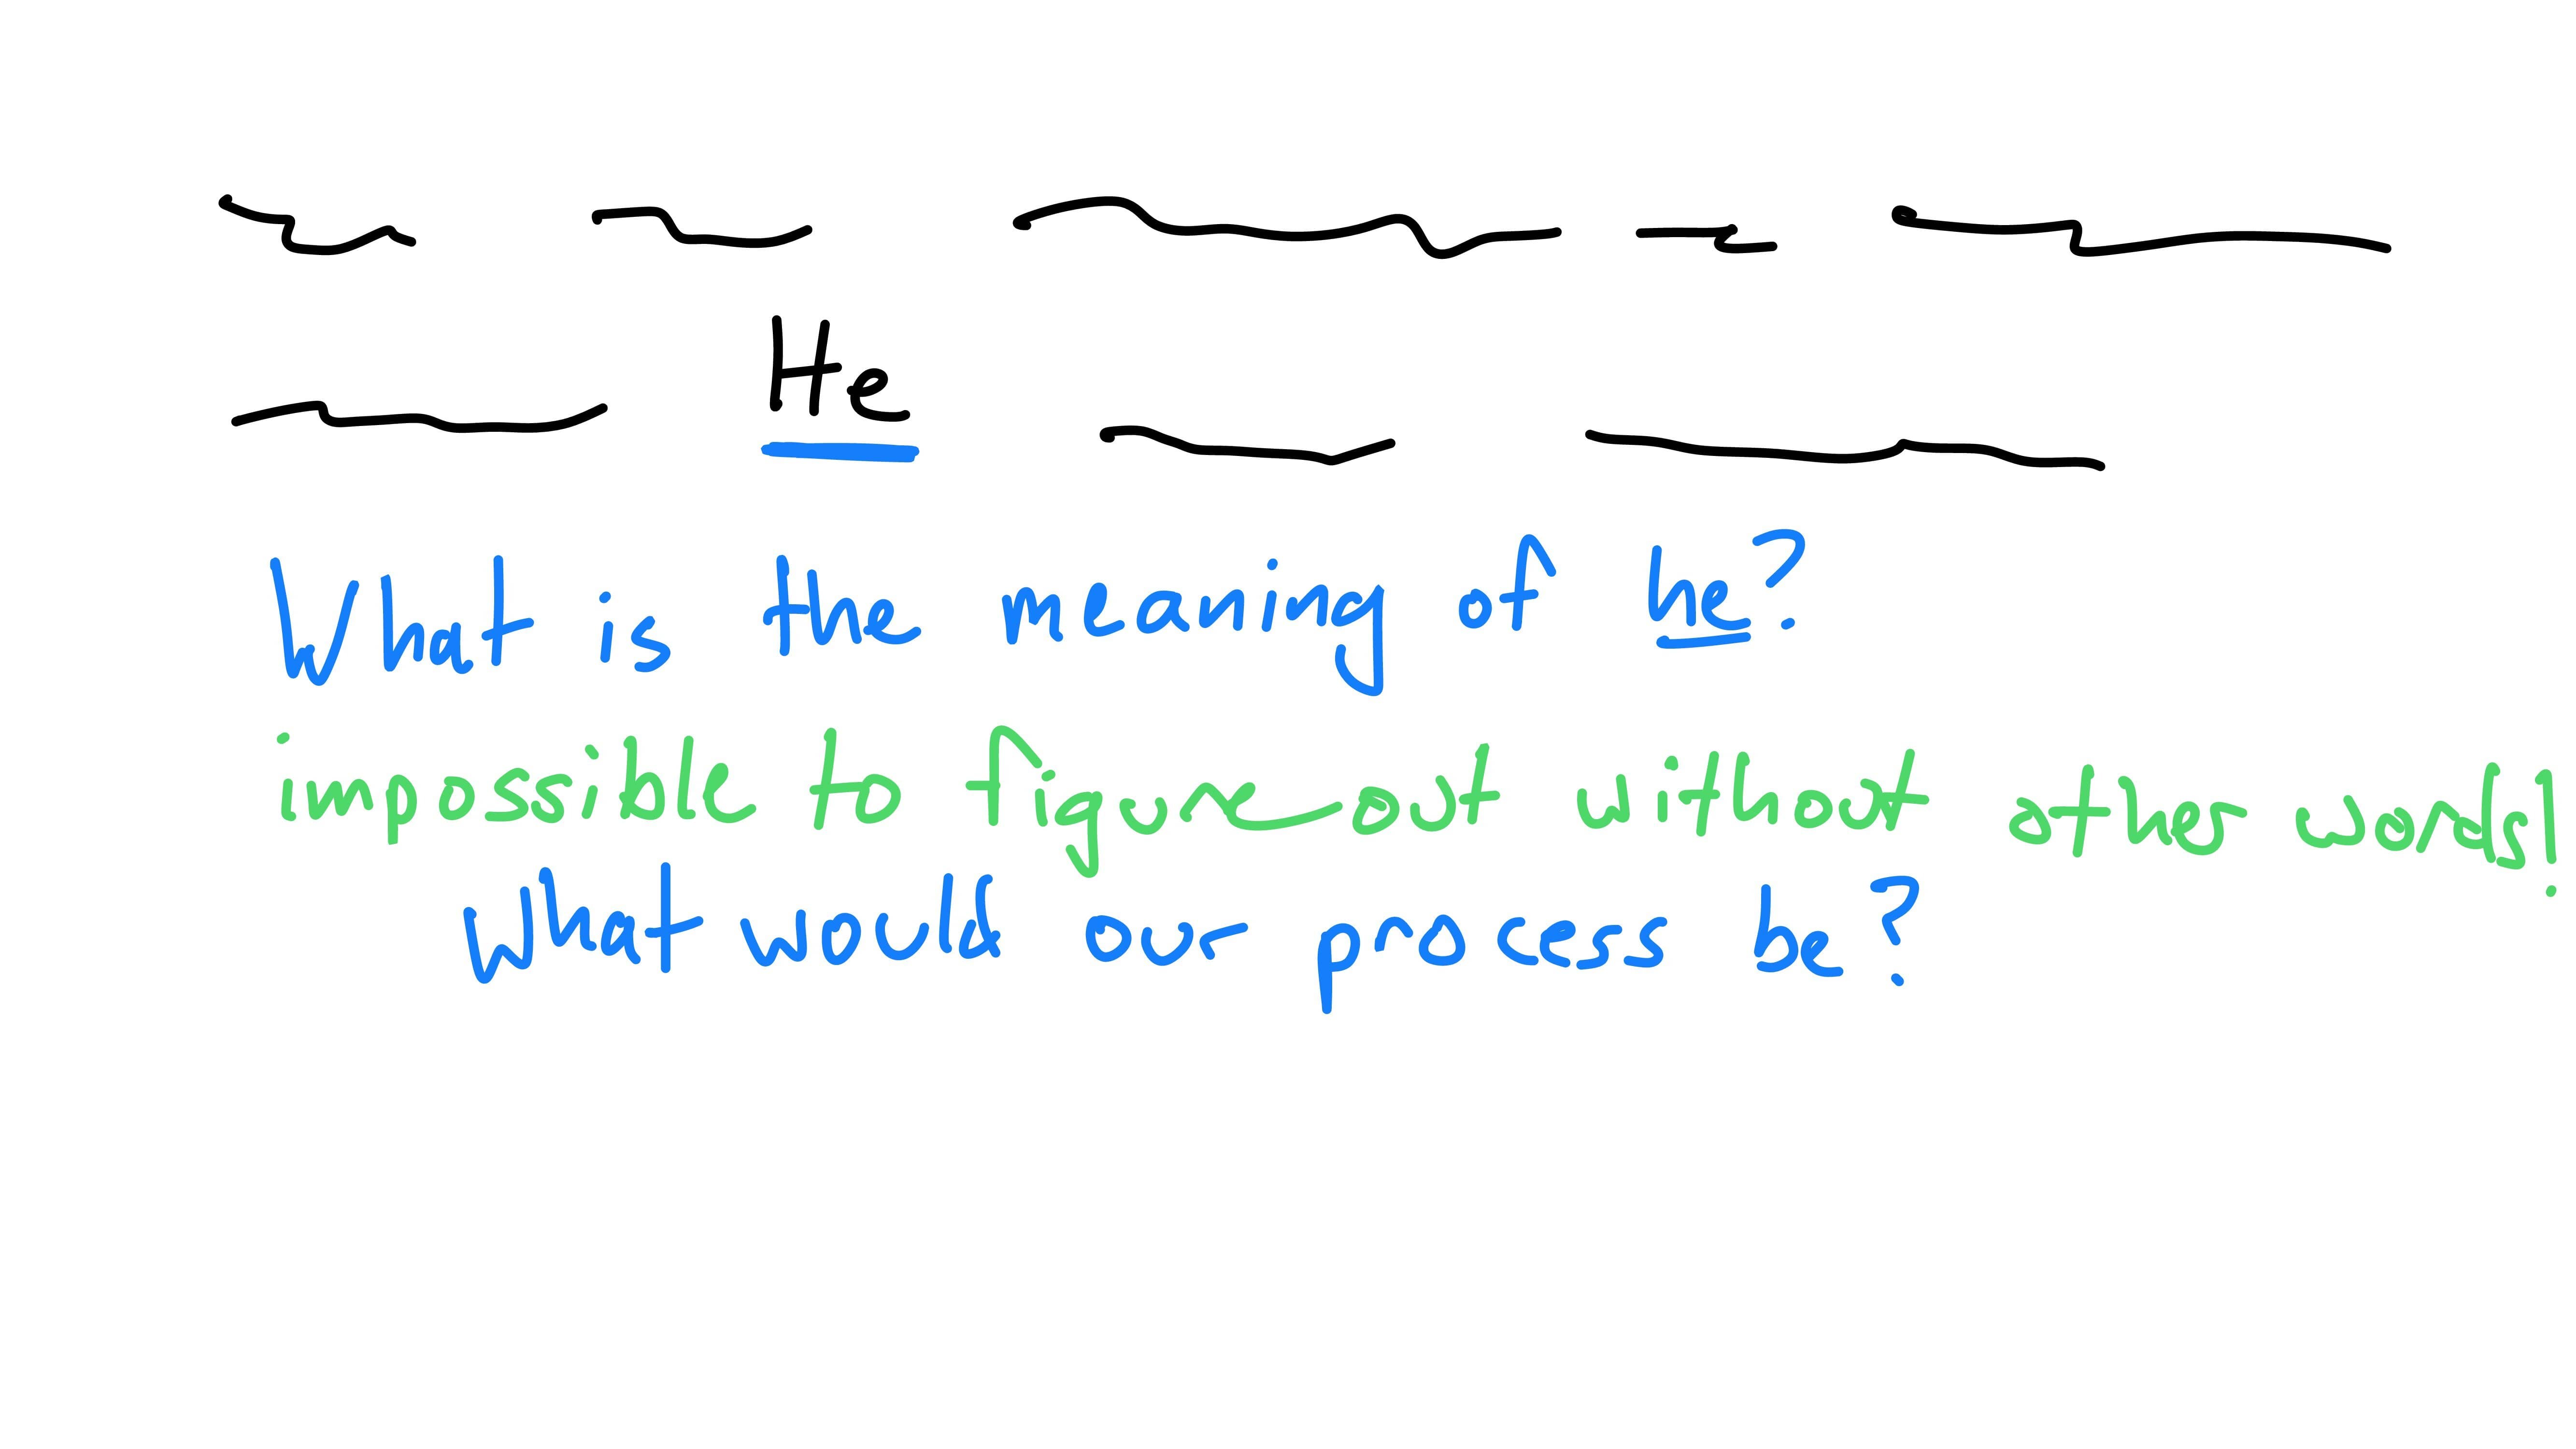 He
What is the meaning of he?
impossible to figure out without other words!
What would our process be?